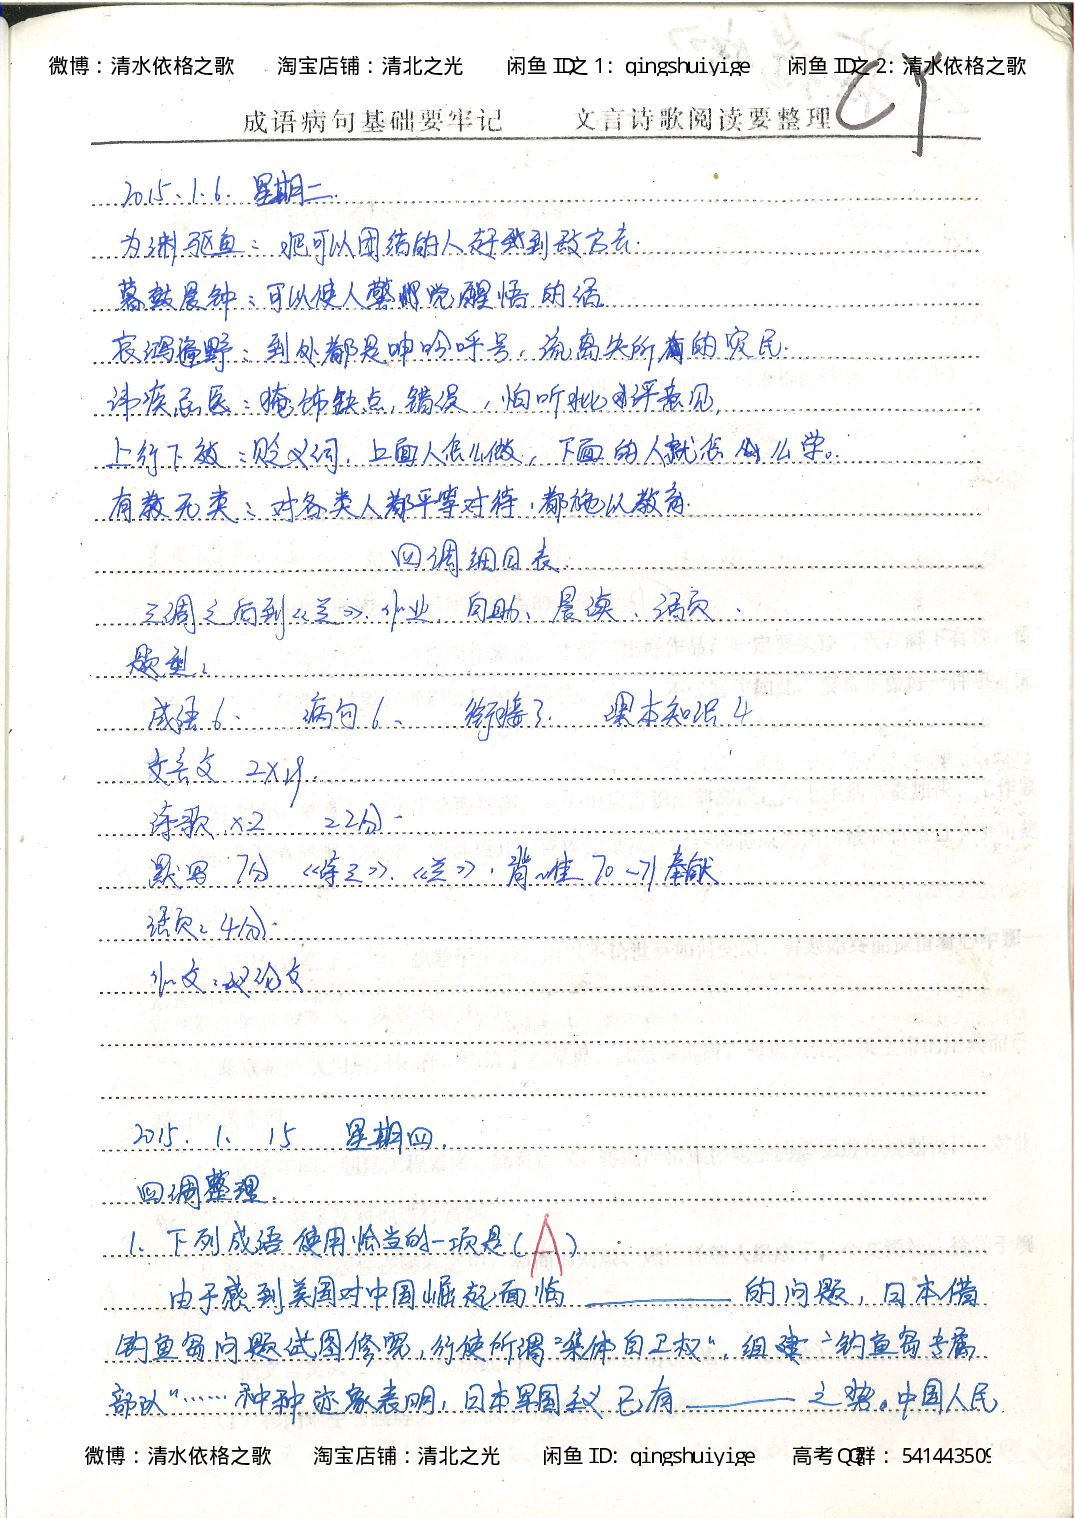 微博：清水依格之歌 淘宝店铺：清北之光 闲鱼ID之1：qingshuiyige 闲鱼ID之2：清水依格之歌
成语病句基础要牢记 文言诗歌阅读要整理
2015、1.6. 星期二.
为渊驱鱼：把可以团结的人赶到敌方去.
暮鼓晨钟：可以使人警觉醒悟的话.
哀鸿遍野：到处都是呻吟呼号，流离失所的灾民.
讳疾忌医：掩饰缺点，错误，怕听批评意见，
上行下效：贬义词，上面人怎么做，下面的人就怎么学。
有教无类：对各类人都平等对待，都施以教育.
四调细目表.
三调之后到《兰》作业、自助、晨读、语页.
题型：
成语6、 病句6、 衔接3. 课本知识4
文言文 2×19.
诗歌×2 22分.
默写 7分 《 》、《兰》. 背 70~71奉献
语页：4分.
作文：议论文
2015. 1. 15 星期四.
四调整理.
1、下列成语使用恰当的一项是(A)
由于感到美国对中国崛起面临________的问题，日本借
钓鱼岛问题试图修宪，行使所谓"集体自卫权"，组建"钓鱼岛专属
部队"……种种迹象表明，日本军国主义已有________之势。中国人民
微博：清水依格之歌 淘宝店铺：清北之光 闲鱼ID：qingshuiyige 高考QQ群：541443509